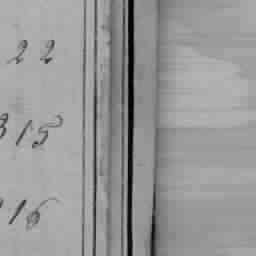 22
315
16